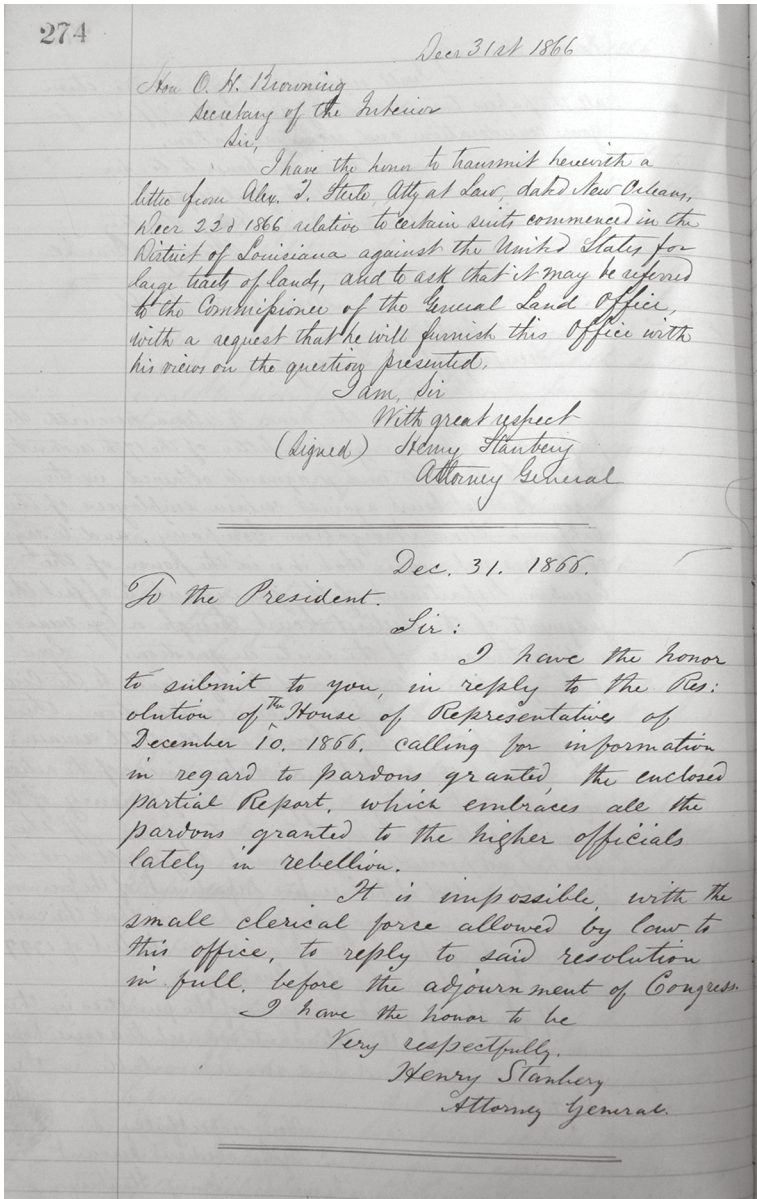 274
Decr 31st 1866
Hon O. H. Browning
Secretary of the Interior
Sir,
I have the honor to transmit herewith a
letter from Alex. T. Steele, Atty at Law, dated New Orleans,
Decr 22d 1866 relative to certain suits commenced in the
District of Louisiana against the United States for
large tracts of lands, and to ask that it may be referred
to the Commissioner of the General Land Office,
with a request that he will furnish this Office with
his views on the question presented.
I am, Sir
With great respect
(Signed) Henry Stanbery
Attorney General
Dec. 31. 1866.
To the President.
Sir:
I have the honor
to submit to you, in reply to the Res:
olution of The House of Representatives of
December 10. 1866. calling for information
in regard to pardons granted, the enclosed
partial Report, which embraces all the
pardons granted to the higher officials
lately in rebellion.
It is impossible, with the
small clerical force allowed by law to
this office, to reply to said resolution
in full, before the adjournment of Congress.
I have the honor to be
Very respectfully.
Henry Stanbery
Attorney General.